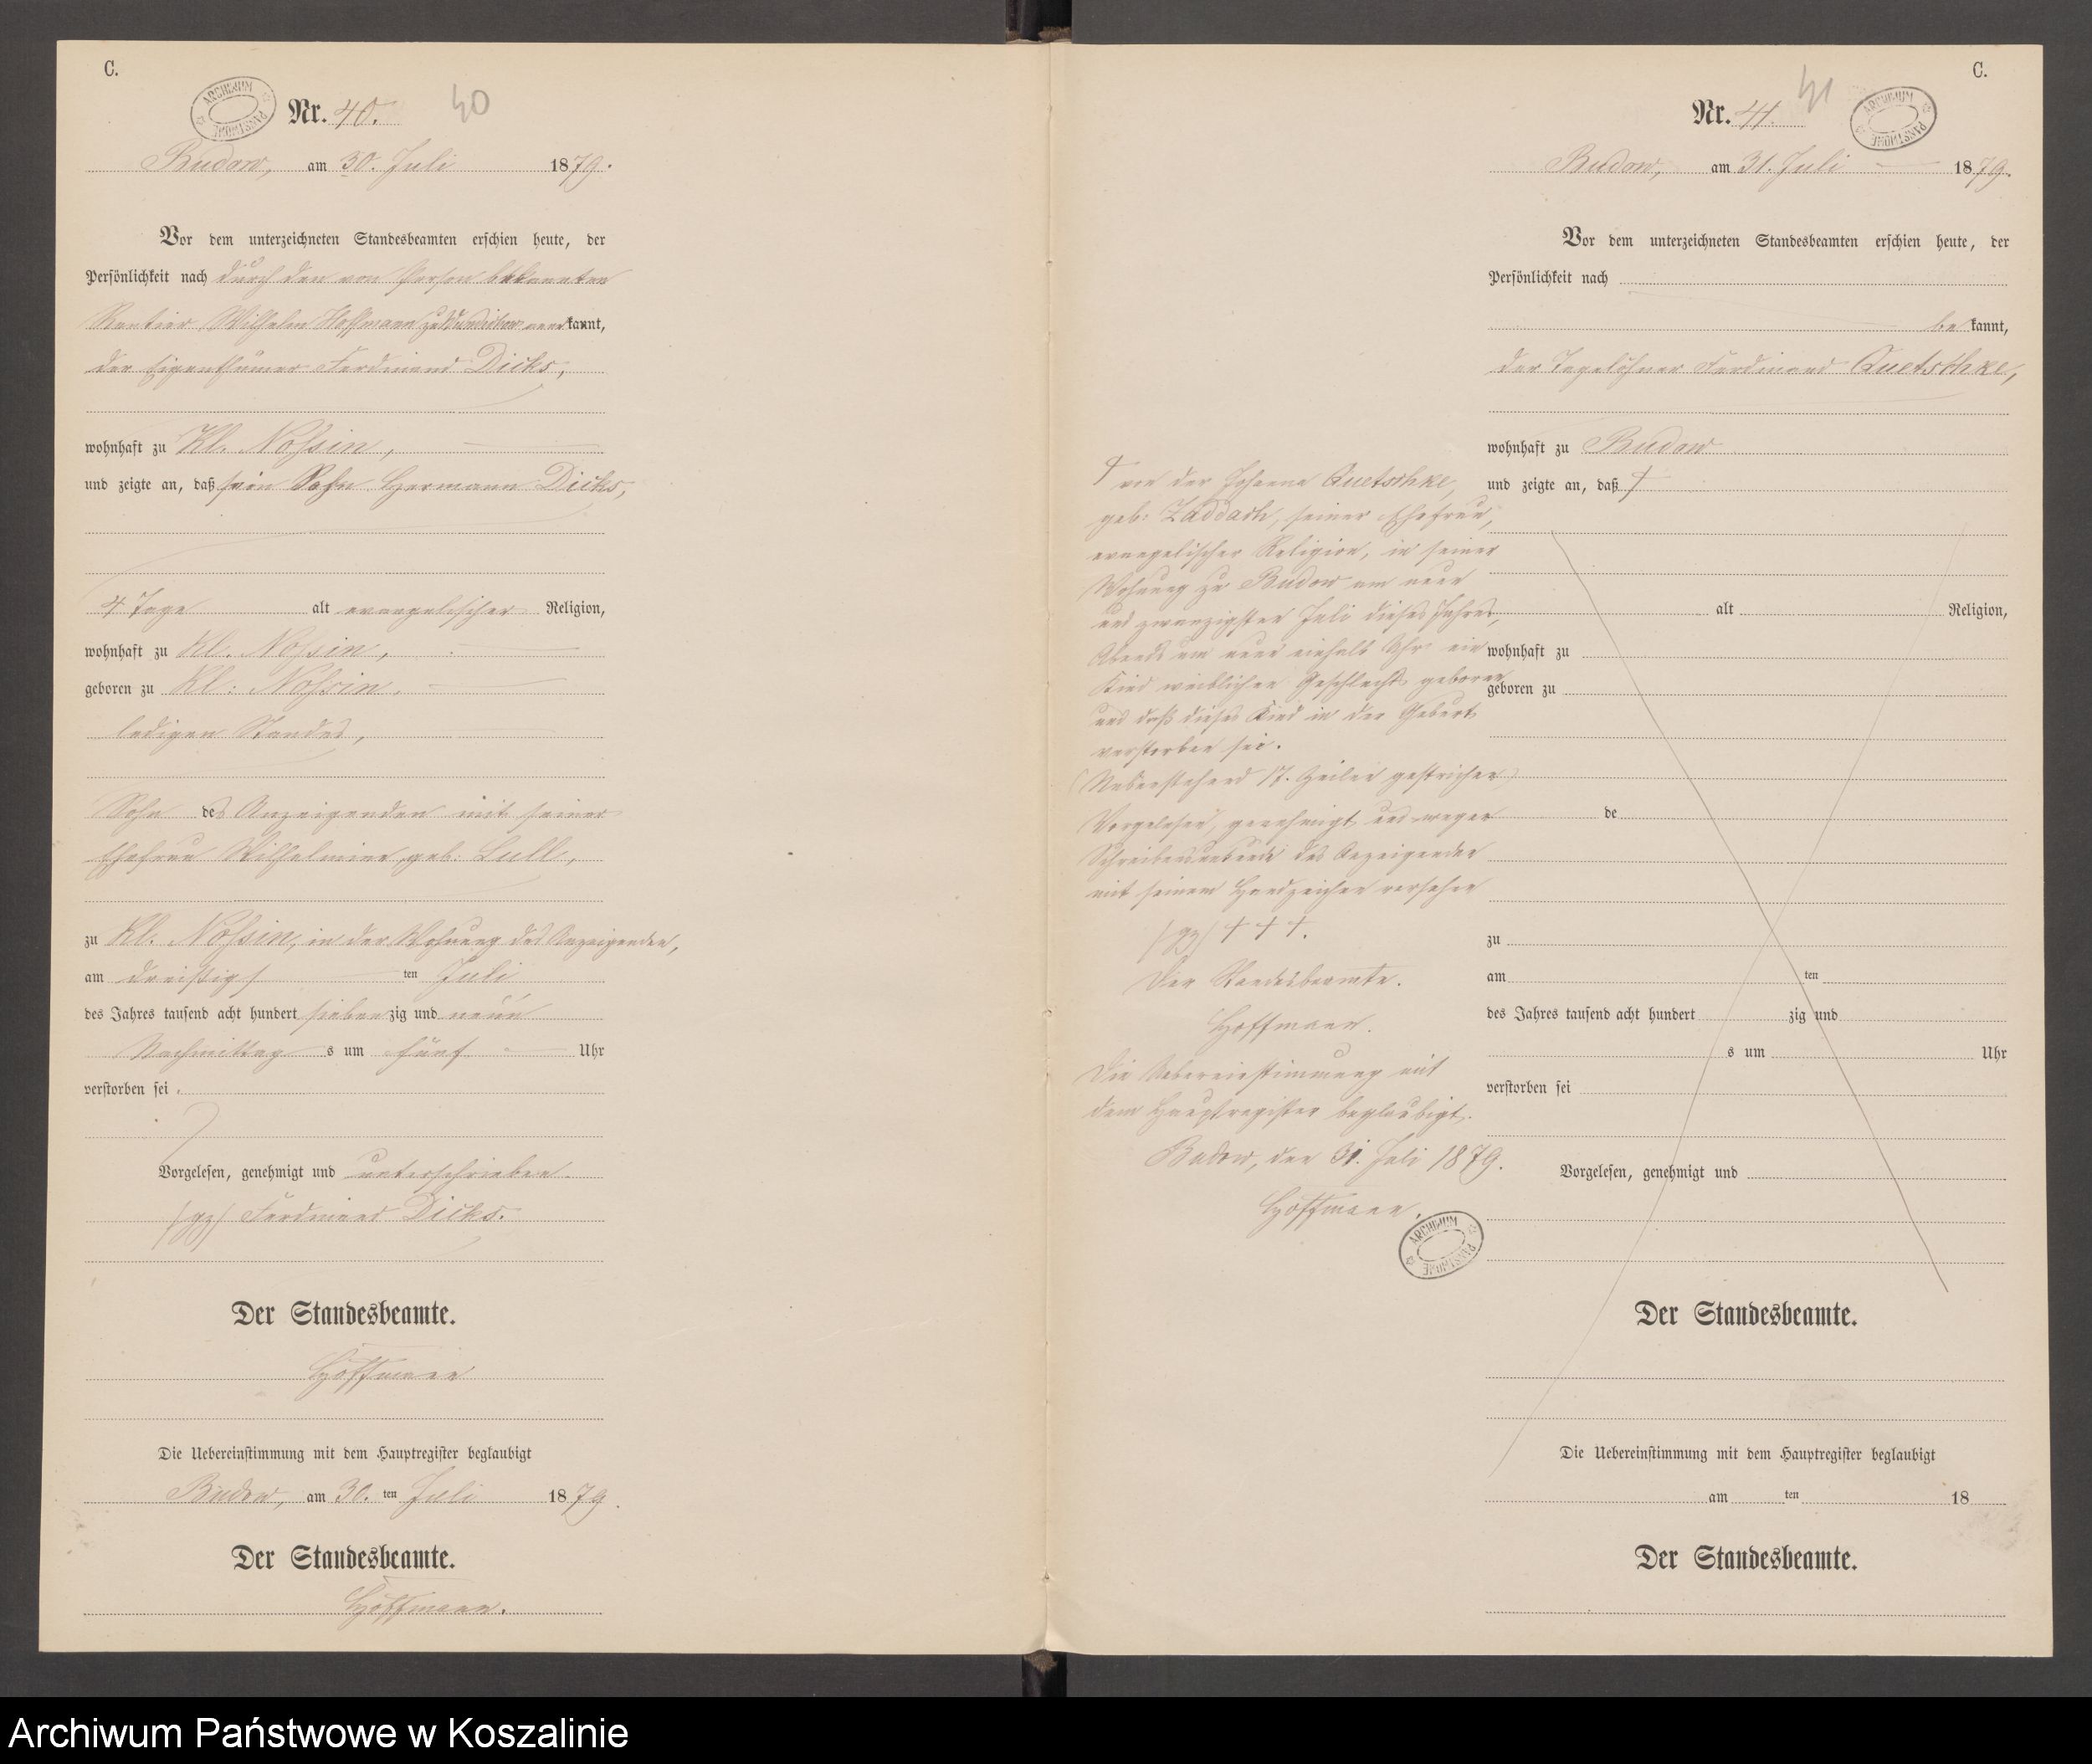 C.
ARCHIWUM PAŃSTWOWE
Nr. 40.
40
Budow, am 30. Juli 1879.
Vor dem unterzeichneten Standesbeamten erschien heute, der
Persönlichkeit nach durch den von Person bekannten
Rentier Wilhelm Hoffmann zu aner kannt,
der Eigenthümer Ferdinand Dicks,
wohnhaft zu Kl. Nossin,
und zeigte an, daß sein Sohn Hermann Dicks,
4 Tage alt evangelischer Religion,
wohnhaft zu Kl. Nossin,
geboren zu Kl: Nossin,
ledigen Standes,
Sohn des Anzeigenden mit seiner
Ehefrau Wilhelmine, geb. Lull,
zu Kl. Nossin, in der Wohnung des Anzeigenden,
am dreißigs ten Juli
des Jahres tausend acht hundert sieben zig und neun
Nachmittag s um fünf Uhr
verstorben sei.
Vorgelesen, genehmigt und unterschrieben.
(gz) Ferdinand Dicks.
Der Standesbeamte.
Hoffmann
Die Uebereinstimmung mit dem Hauptregister beglaubigt
Budow, am 30. ten Juli 1879.
Der Standesbeamte.
Hoffmann.
C.
Nr. 41.
41
ARCHIWUM PAŃSTWOWE
Budow, am 31. Juli 1879.
Vor dem unterzeichneten Standesbeamten erschien heute, der
Persönlichkeit nach
be kannt,
der Tagelöhner Ferdinand Quetschke,
wohnhaft zu Budow
und zeigte an, daß †
† von der Johanna Quetschke,
geb: Zaddach, seiner Ehefrau,
evangelischer Religion, in seiner
Wohnung zu Budow am neun
und zwanzigsten Juli dieses Jahres,
Abends um neun einhalb Uhr ein
Kind weiblichen Geschlechts geboren
und daß dieses Kind in der Geburt
verstorben sei.
(Nebenstehend 17. Zeilen gestrichen)
Vorgelesen, genehmigt und wegen
Schreibensunkunde des Anzeigenden
mit seinem Handzeichen versehen
(gz) † † †.
Der Standesbeamte.
Hoffmann.
Die Uebereinstimmung mit
dem Hauptregister beglaubigt.
Budow, den 31. Juli 1879.
Hoffmann.
ARCHIWUM PAŃSTWOWE
alt Religion,
wohnhaft zu
geboren zu
de
zu
am ten
des Jahres tausend acht hundert zig und
s um Uhr
verstorben sei
Vorgelesen, genehmigt und
Der Standesbeamte.
Die Uebereinstimmung mit dem Hauptregister beglaubigt
am ten 18
Der Standesbeamte.
Archiwum Państwowe w Koszalinie